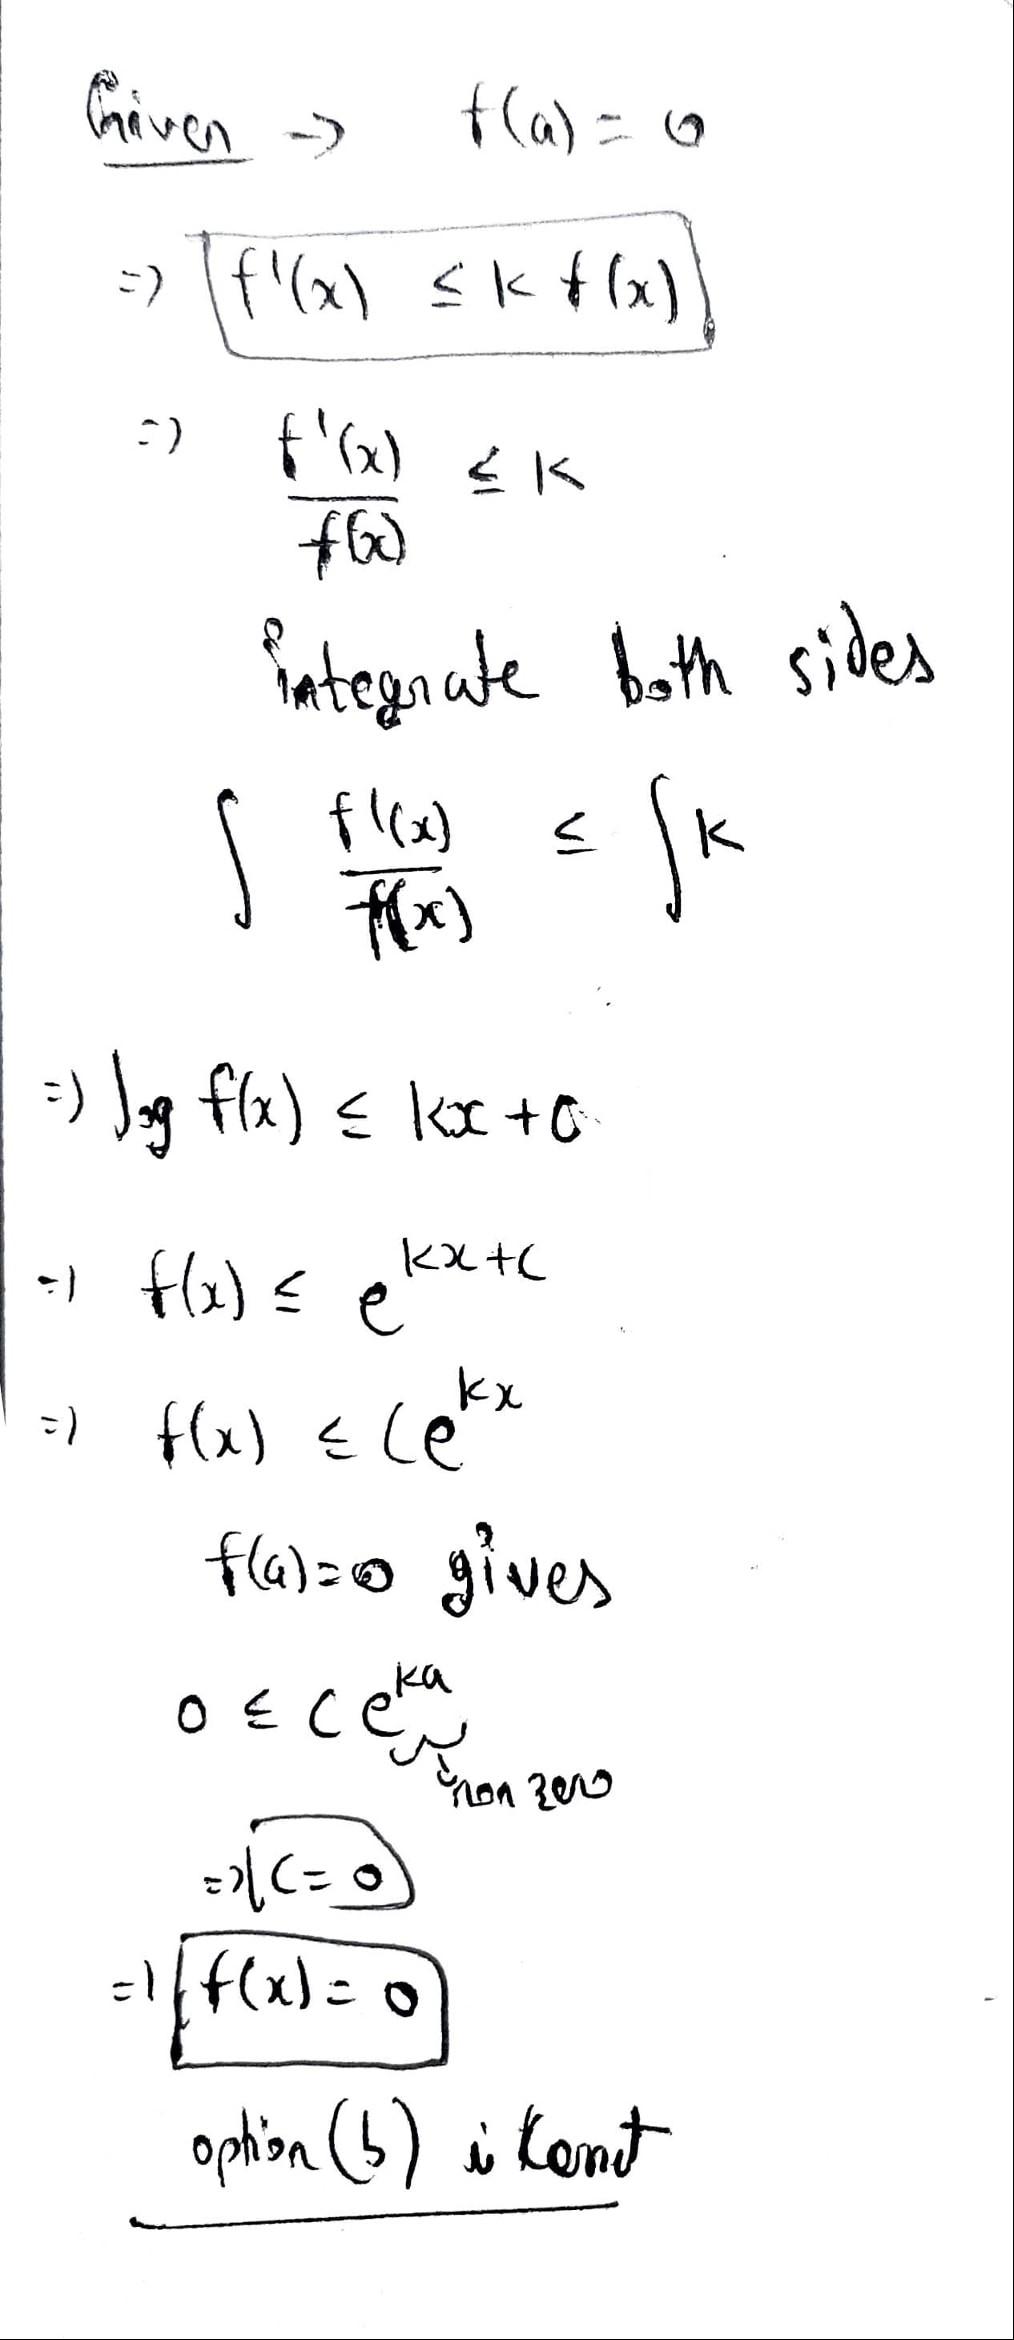 Given → f(a) = 0
=> f'(x) ≤ k f(x)
=> f'(x) / f(x) ≤ k
integrate both sides
∫ f'(x) / f(x) ≤ ∫ k
=> log f(x) ≤ kx + c
=> f(x) ≤ e^{kx+c}
=> f(x) ≤ Ce^{kx}
f(a) = 0 gives
0 ≤ Ce^{ka}
non zero
=> C = 0
=> f(x) = 0
option (b)